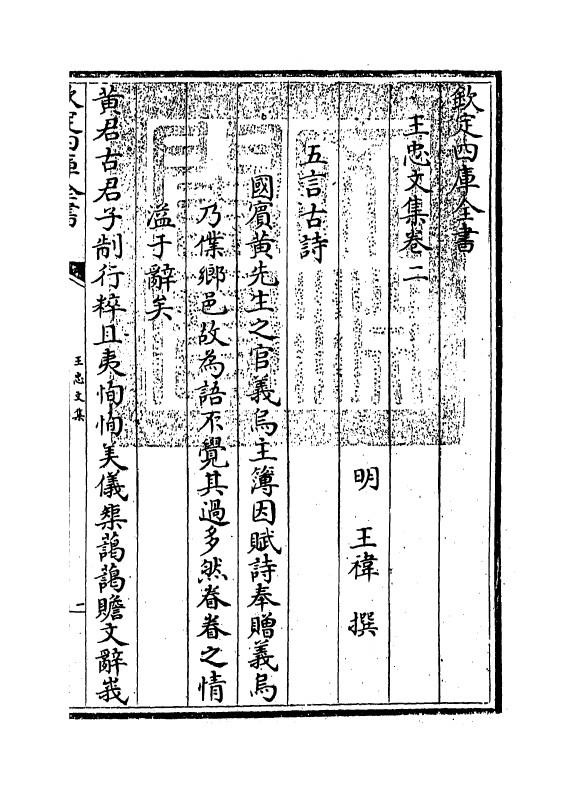 欽定四庫全書
王忠文集卷二
明 王禕 撰
五言古詩
國賓黄先生之官義烏主簿因賦詩奉贈義烏
乃僕鄉邑故為語不覺其過多然眷眷之情
溢于辭矣
黄君古君子制行粹且夷恂恂美儀榘藹藹贍文辭峩
欽定四庫全書
王忠文集